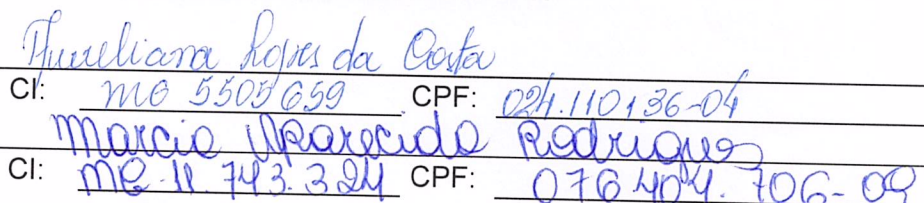 Aureliana Lopes da Costa
CI: MG 5505659 CPF: 024.110136-04
Marcio Aparecido Rodrigues
CI: MG-11.743.324 CPF: 076404.706-09